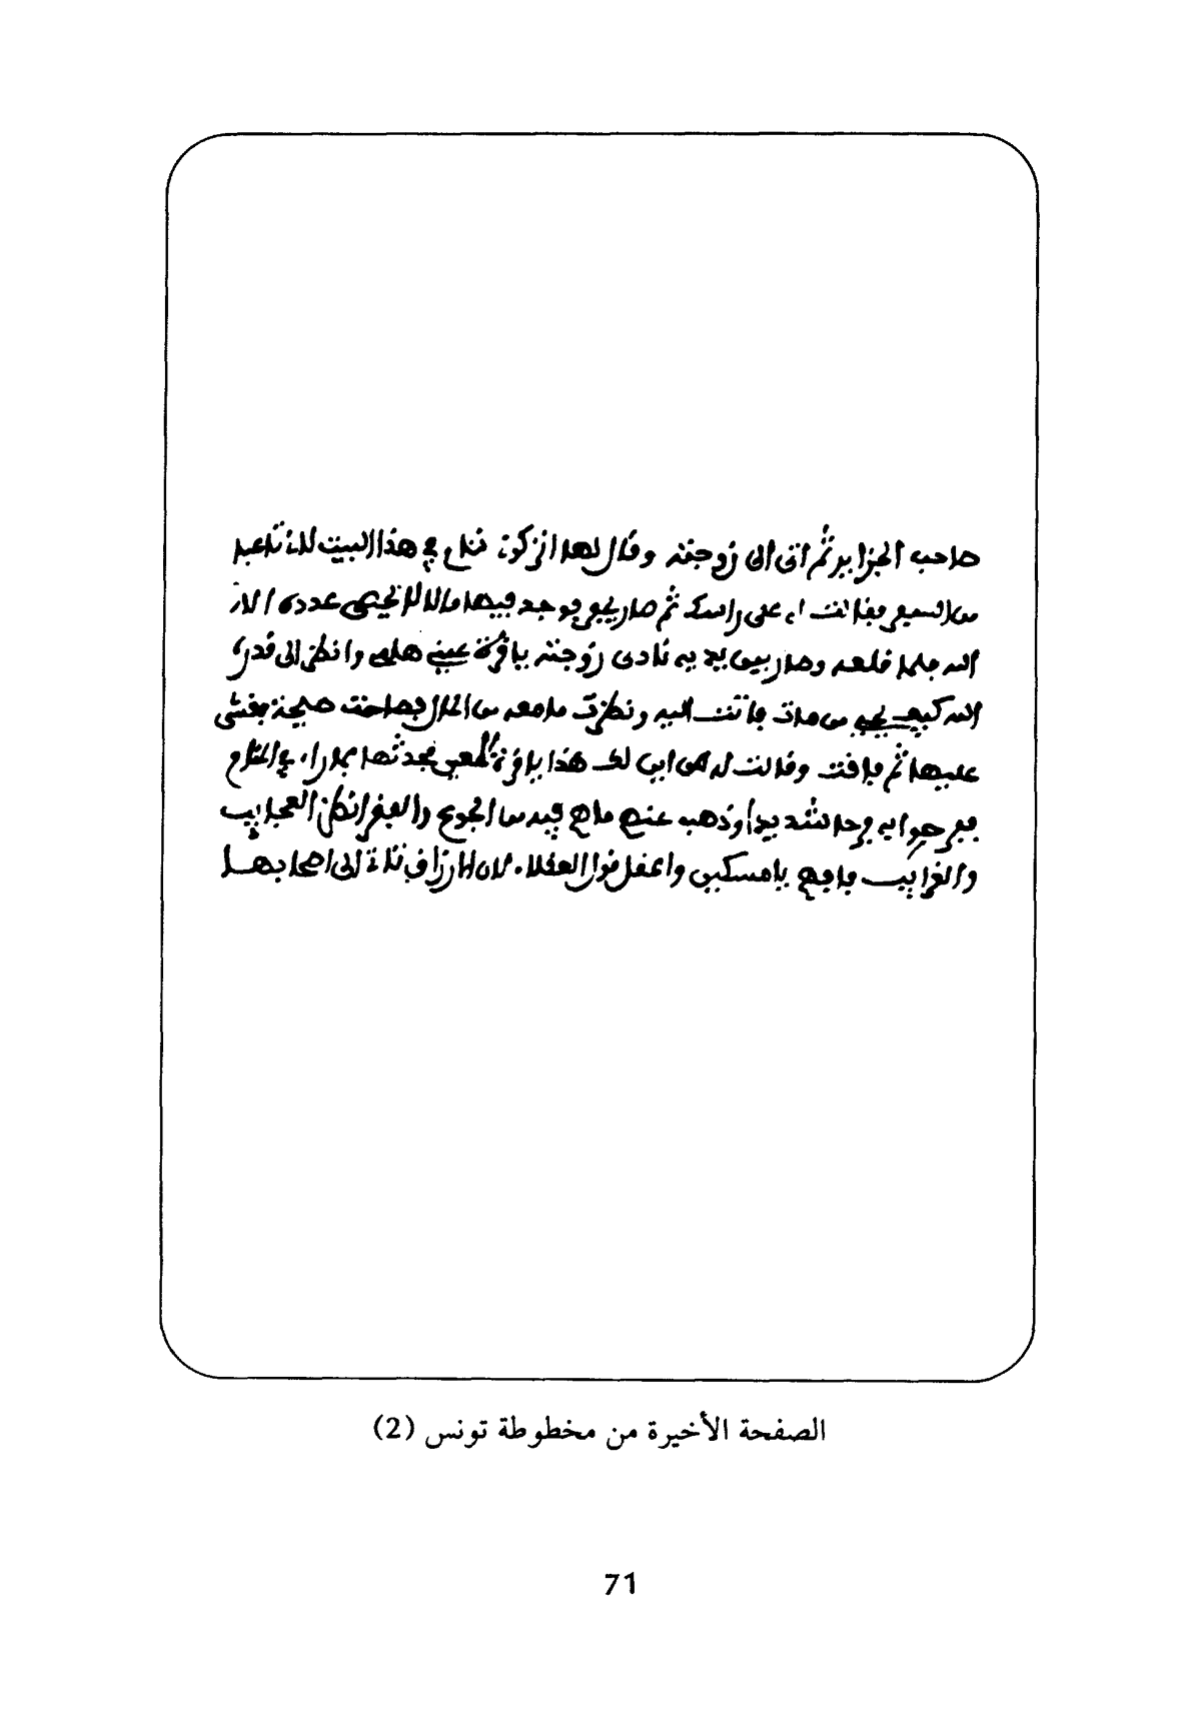 صاحب الجزاير ثم اتى الى زوجته وقال لها اتركونى ننام في هذا البيت لانه تاعب
من السعي فقالت له على راسك ثم صار يحفر فوجد فيها مالا لا يحصى عدده الا
الله فلما قلعه وصار بين يديه نادى زوجته يا قرة عيني هلمي وانظري الى قدرة
الله كيف يحيي من مات فاتت اليه ونظرت ما معه من المال فصاحت صيحة فغشي
عليها ثم فاقت وقالت له من اين لك هذا يا قرة العين فحدثها بما راى في المنام
ففرحوا به فرحا شديدا وذهب عنهم ما هم فيه من الجوع والفقر انظر العجايب
والغرايب فافهم يا مسكين واعقل قول العقلاء لان الارزاق تاتي الى اصحابها
الصفحة الأخيرة من مخطوطة تونس (2)
71